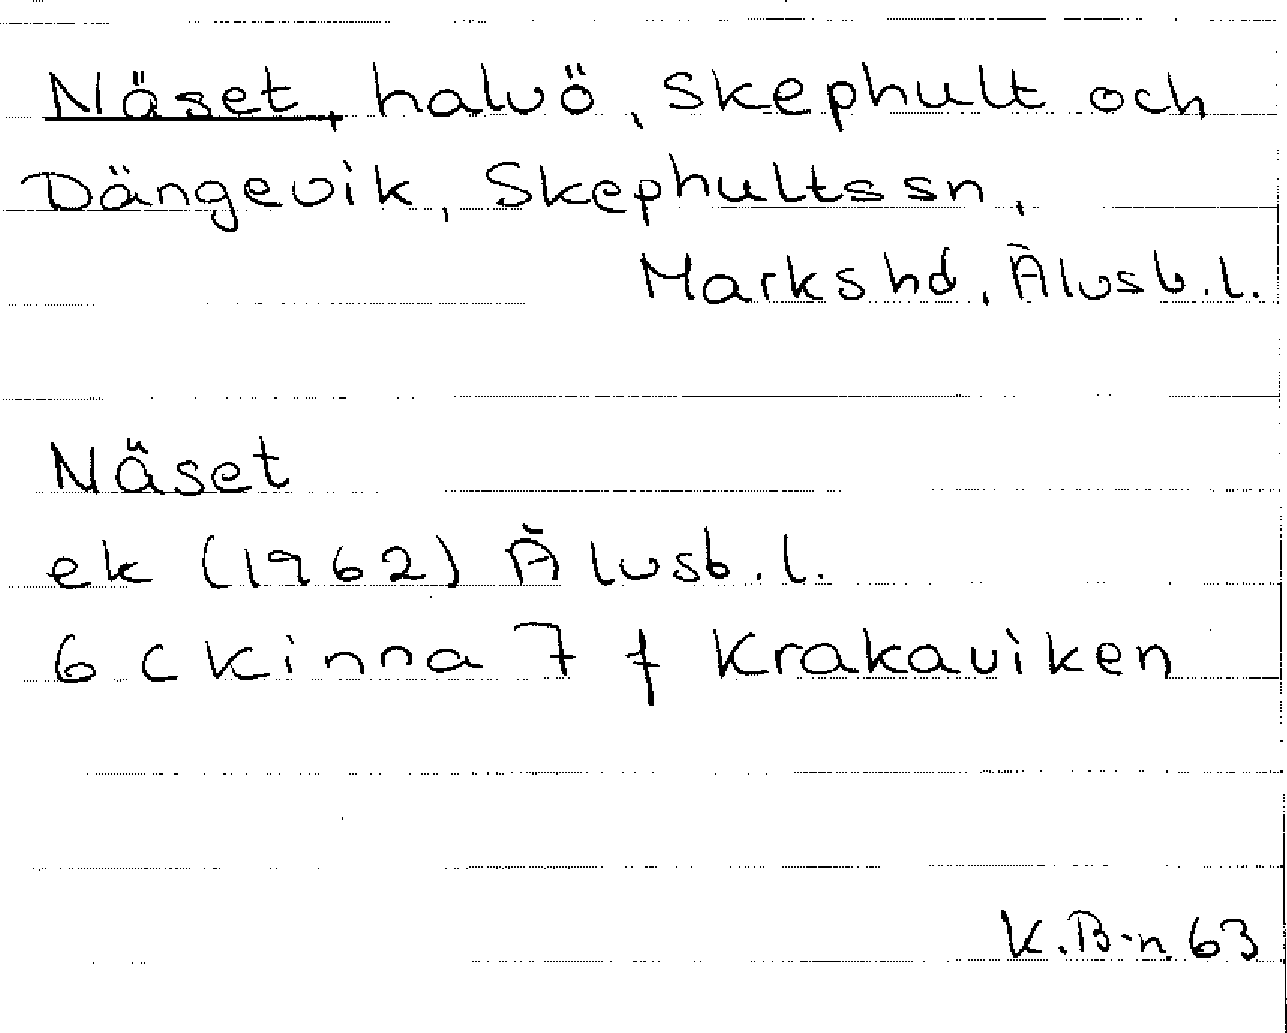 Näset, halvö, Skephult och
Dängevik, Skephults sn,
Marks hd, Älvsb. l.
Näset
ek (1962) Älvsb. l.
6 C Kinna 7 f Krakaviken
K. B-n. 63